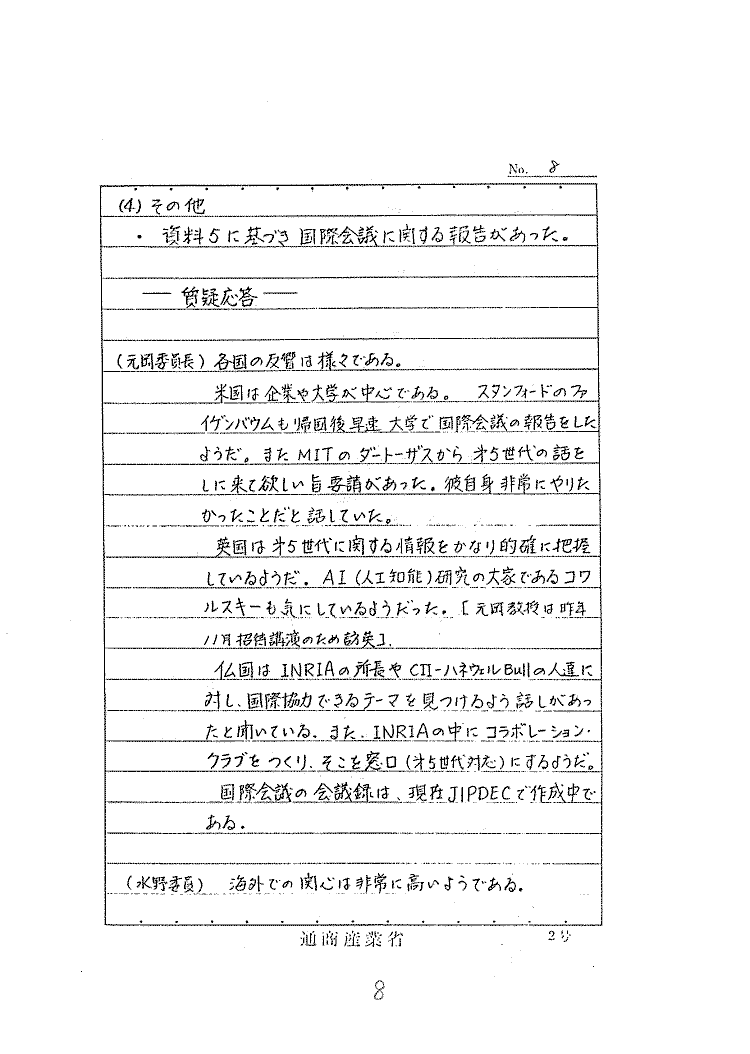 No. 8
(4) その他
・ 資料5に基づき国際会議に関する報告があった。
── 質疑応答 ──
(元岡委員長) 各国の反響は様々である。
米国は企業や大学が中心である。 スタンフォードのファ
イゲンバウムも帰国後早速大学で国際会議の報告をした
ようだ。またMITのダートーザスから才5世代の話を
しに来て欲しい旨要請があった。彼自身非常にやりた
かったことだと話していた。
英国は才5世代に関する情報をかなり的確に把握
しているようだ。AI(人工知能)研究の大家であるコワ
ルスキーも気にしているようだった。[元岡教授は昨年
11月招待講演のため訪英].
仏国はINRIAの所長やCII-ハネウェルBullの人達に
対し、国際協力できるテーマを見つけるよう話しがあっ
たと聞いている。また、INRIAの中にコラボレーション・
クラブをつくり、そこを窓口(才5世代対応)にするようだ。
国際会議の会議録は、現在JIPDECで作成中で
ある.
(水野委員) 海外での関心は非常に高いようである.
通商産業省
2号
8